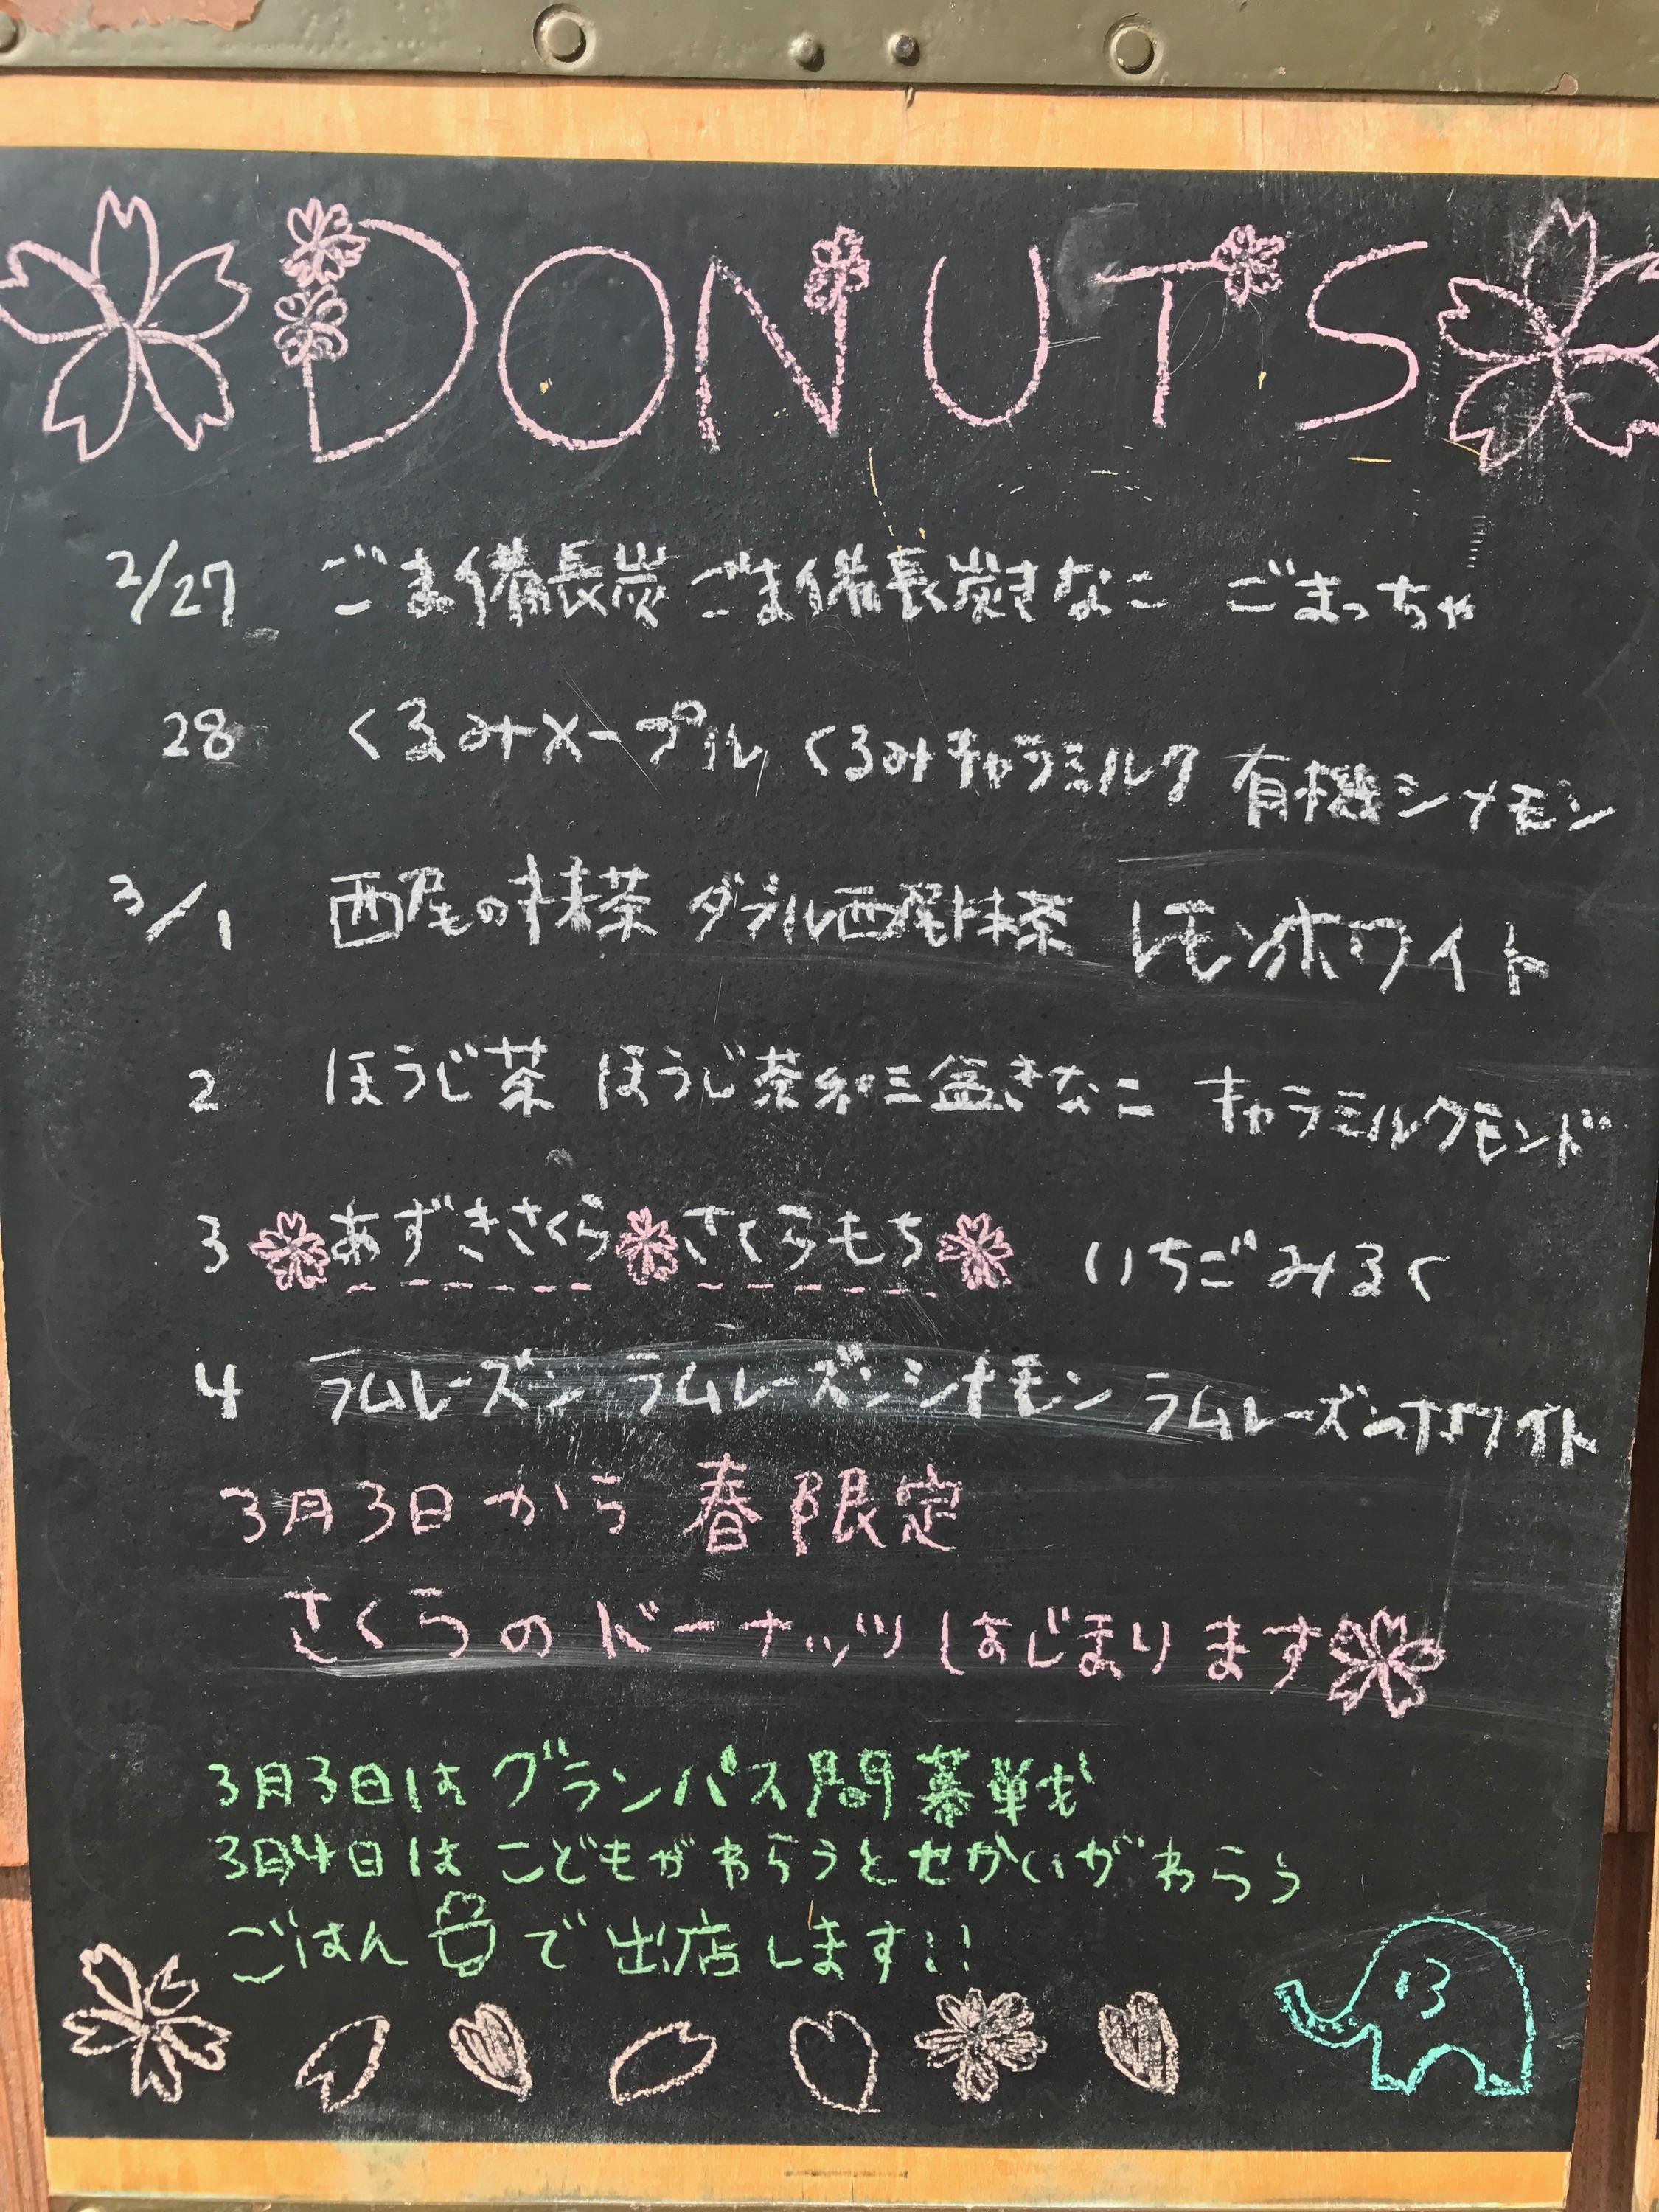 DONUTS
2/27 ごま備長炭 ごま備長炭きなこ ごまっちゃ
28 くるみメープル くるみキャラミルク 有機シナモン
3/1 西尾の抹茶 ダブル西尾抹茶 レモンホワイト
2 ほうじ茶 ほうじ茶和三盆きなこ キャラミルクモンド
3 あずきさくら さくらもち いちごみるく
4 ラムレーズン ラムレーズンシナモン ラムレーズンホワイト
3月3日から 春限定
さくらのドーナッツはじまります
3月3日は グランパス開幕戦
3月4日は こどもがわらうとせかいがわらう
ごはんで出店します!!